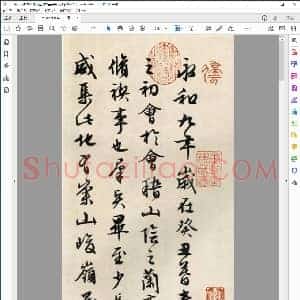 永和九年歲在癸丑暮
之初會於會稽山陰之蘭
脩禊事也群賢畢至少長
咸集此地有崇山峻嶺
Shufaziliao.com